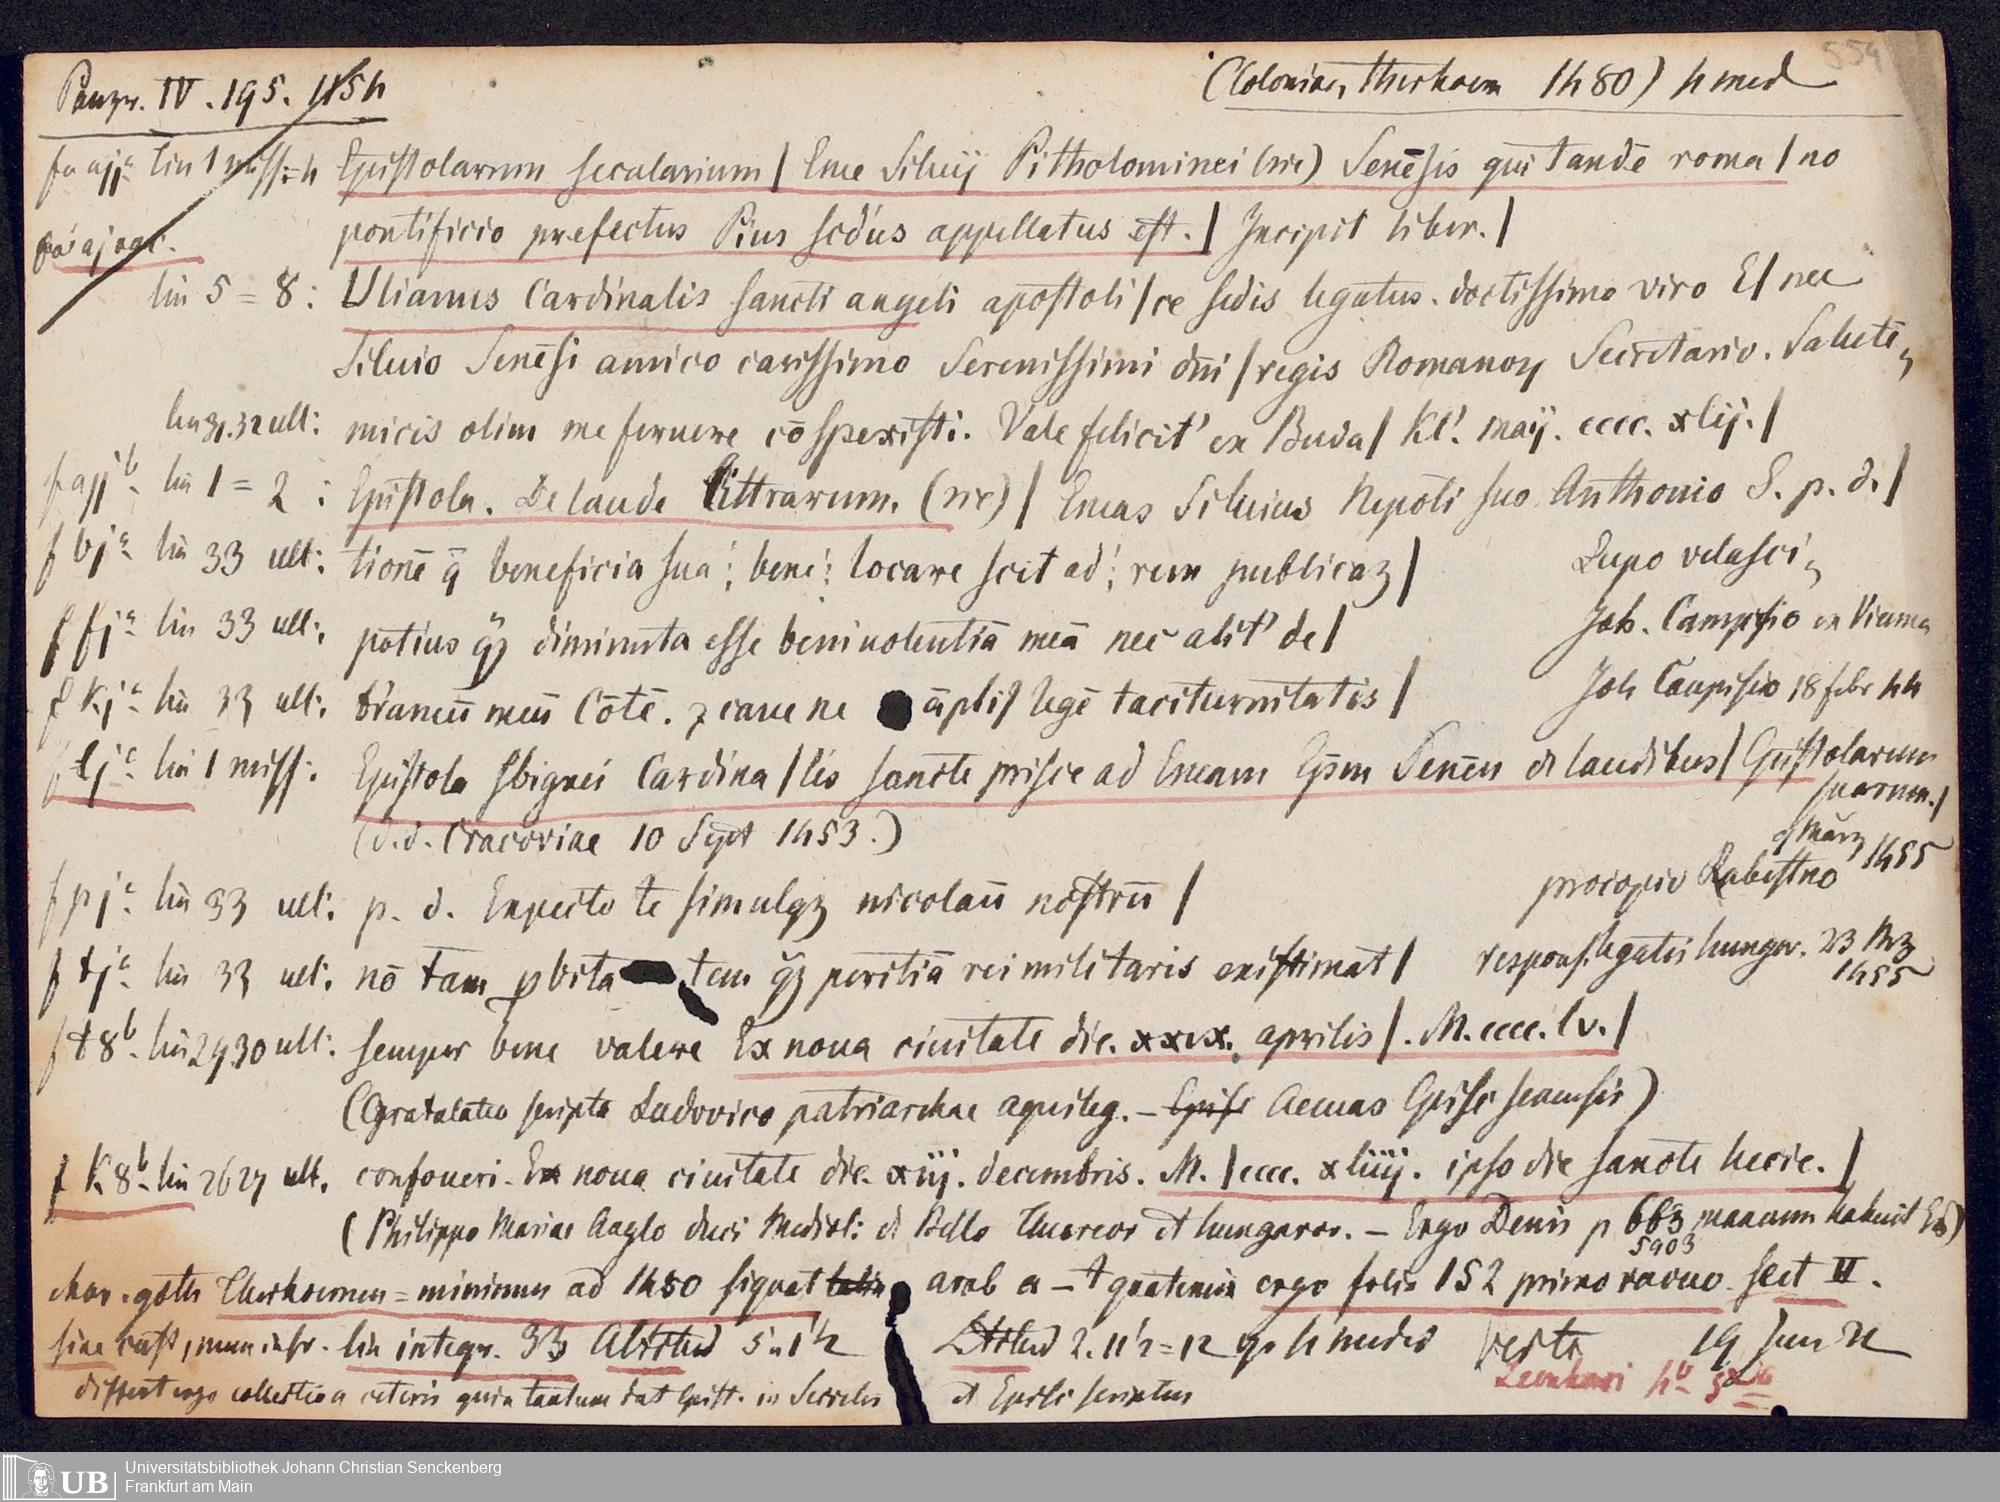 554
Panzer. IV. 195. 1154 (Coloniae, Therhoern 1480) 4 med
fa ajja lin 1 miss: = 4 Epistolarum secularium / Enee Siluij Pitholominei (sic) Senēsis qui tandē roma / no
aj
pontificio prefectus Pius scd'us appellatus est. / Incipit liber. /
lin 5 = 8: Ulianus Cardinalis sancti angeli apostoli / ce sedis legatus. doctissimo viro E / nee
Siluio Senēsi amico carissimo Serenissimi dn̄i / regis Romanoꝝ Secretario. Salutē
lin 31.32 ult: micis olim me feruere cōspexisti. Vale felicit' ex Buda / Kl'. maij. cccc. xlij. /
f ajjb lin 1 = 2: Epistola. De laude Littrarum. (sic) / Eneas Siluius Nepoti suo Anthonio S. p. d. /
f bja lin 33 ult: tionē q̄ beneficia sua; bene; locare scit ad; rem publicaꝫ / Lupo velasci
f fja lin 33 ult: potius qꝫ diminuta esse beniuolentiā meā nec alit' de / Joh. Campisio ex Vienna
f kja lin 33 ult: meū Cōtē. ⁊ caue ne āpli / legē taciturnitatis / Joh Campisio 18 febr 44
f lja lin 1 miss: Epistola Sbignei Cardina / lis sancte prisce ad Eneam Ep̄m Senēn de laudibus / Epistolarum
suarum. /
(d. d. Cracoviae 10 Sept 1453.)
9 März 1455
f pja lin 33 ult: p. d. Expecto te simulqꝫ nicolaū nostrū / procopio Rabestno
f tja lin 33 ult: nō tam ꝓbita tem qꝫ peritiā rei militaris existimat / respons. legatis hungar. 23 Mrz
1455
f t8b. lin 29 30 ult: semper bene valere Ex noua ciuitate die. xxix. aprilis / . M. cccc. lv. /
(Gratulatio scripta Ludovico patriarchae aquileg. – Episc Aeneas Episc senensis)
f k8b lin 26 27 ult. confoueri. Ex noua ciuitate die. xiij. decembris. M. / cccc. xliiij. ipso die sancte lucie. /
(Philippo Mariae Anglo duci Mediol: de Bello Thurcor et hungaror. – Ergo Denis p 663 manum habuit Ed)
5903
char. goth Therhoernen = minimus ad 1480 signat arab a – t quaternis ergo folia 152 primo vacuo. Sect VI.
sine cust, num infr. lin integr. 33 Abstnd 5 = 1 1/2 2. 11 1/2 = 12 go 4 medio verte 19 Jun 21
differt ergo collectio a ceteris quia tantum dat Epist. in Secular et Episc scriptus